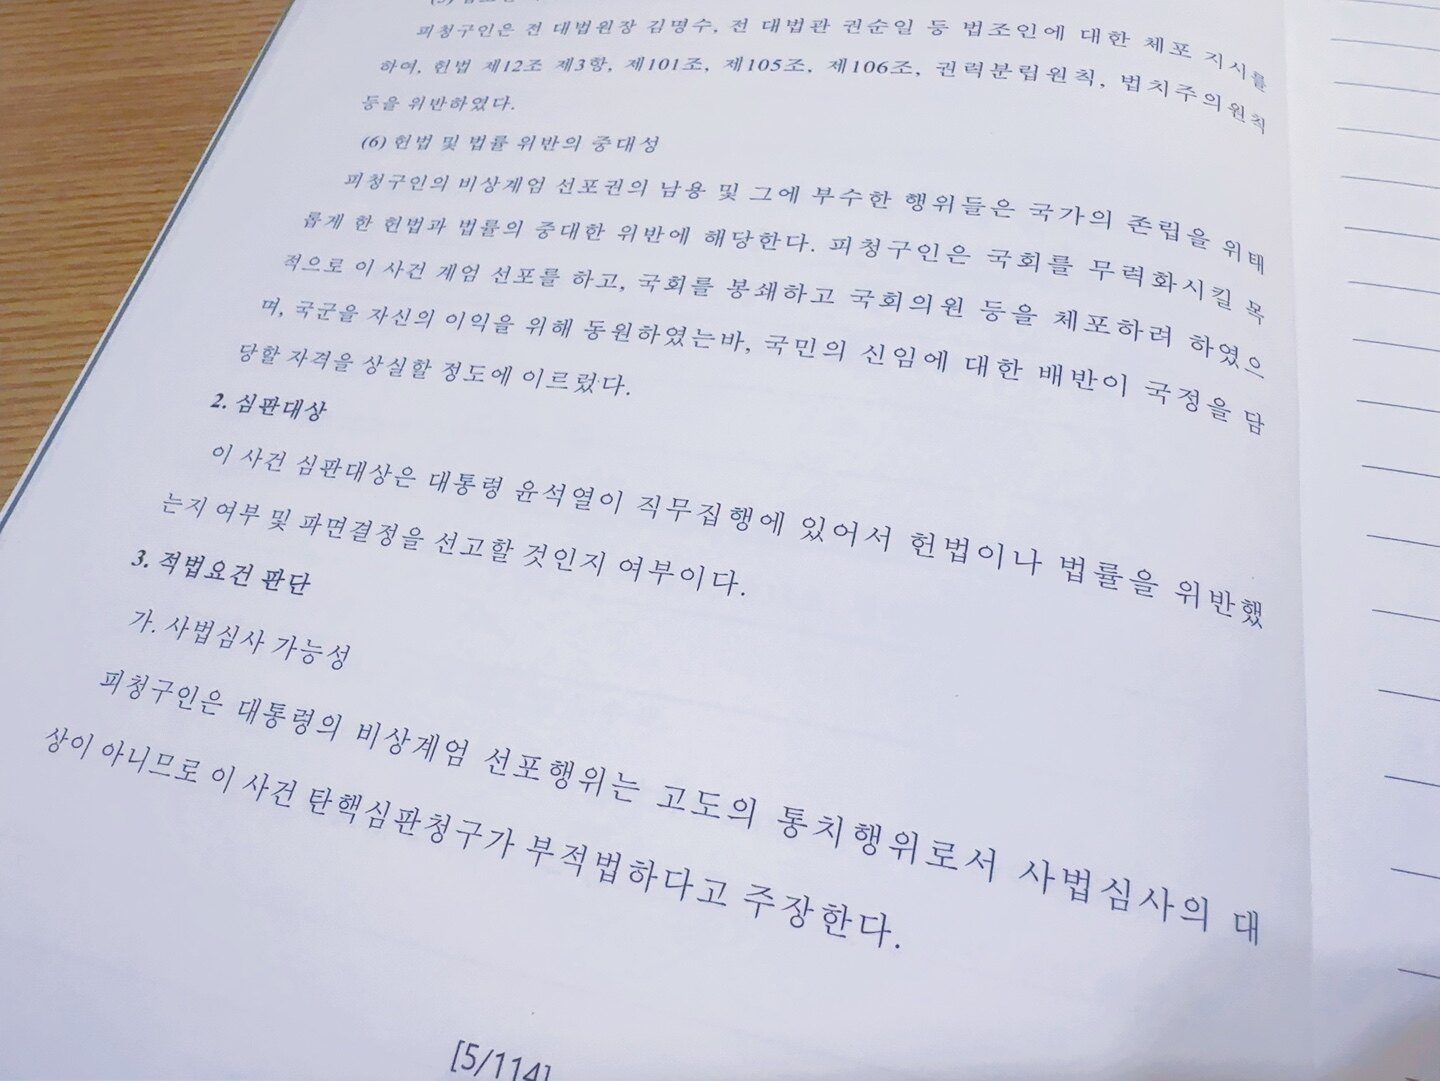 피청구인은 전 대법원장 김명수, 전 대법관 권순일 등 법조인에 대한 체포 지시를
하여, 헌법 제12조 제3항, 제101조, 제105조, 제106조, 권력분립원칙, 법치주의원칙
등을 위반하였다.
(6) 헌법 및 법률 위반의 중대성
피청구인의 비상계엄 선포권의 남용 및 그에 부수한 행위들은 국가의 존립을 위태
롭게 한 헌법과 법률의 중대한 위반에 해당한다. 피청구인은 국회를 무력화시킬 목
적으로 이 사건 계엄 선포를 하고, 국회를 봉쇄하고 국회의원 등을 체포하려 하였으
며, 국군을 자신의 이익을 위해 동원하였는바, 국민의 신임에 대한 배반이 국정을 담
당할 자격을 상실할 정도에 이르렀다.
2. 심판대상
이 사건 심판대상은 대통령 윤석열이 직무집행에 있어서 헌법이나 법률을 위반했
는지 여부 및 파면결정을 선고할 것인지 여부이다.
3. 적법요건 판단
가. 사법심사 가능성
피청구인은 대통령의 비상계엄 선포행위는 고도의 통치행위로서 사법심사의 대
상이 아니므로 이 사건 탄핵심판청구가 부적법하다고 주장한다.
[5/114]